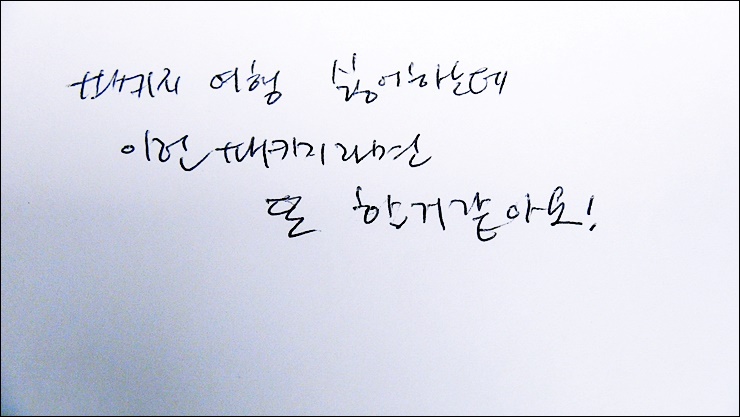 패키지 여행 싫어하는데
이런 패키지라면
또 할거같아요!